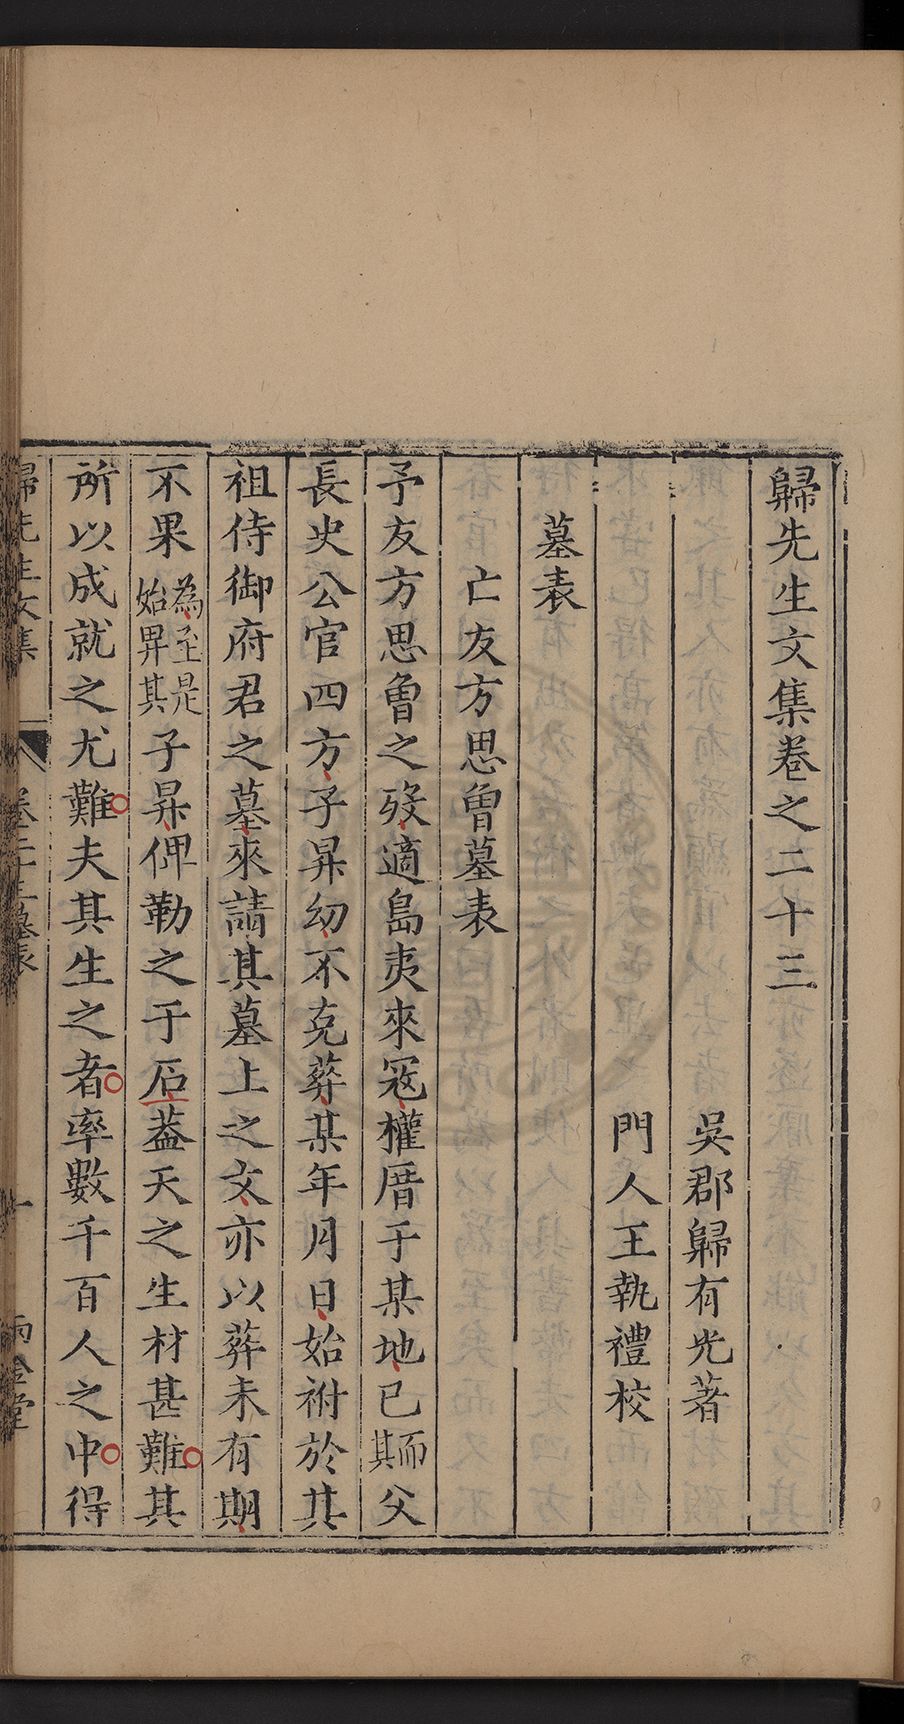 歸先生文集卷之二十三
吳郡歸有光著
門人王執禮校
墓表
亡友方思曾墓表
予友方思曾之歿適島夷來寇權厝于某地已而其父
長史公官四方子昇幼不克葬某年月日始祔於其
祖侍御府君之墓來請其墓上之文亦以葬未有期
不果為至是始畀其子昇俾勒之于石蓋天之生材甚難其
所以成就之尤難夫其生之者率數千百人之中得
歸先生文集 卷二十三墓表 一 雨金堂